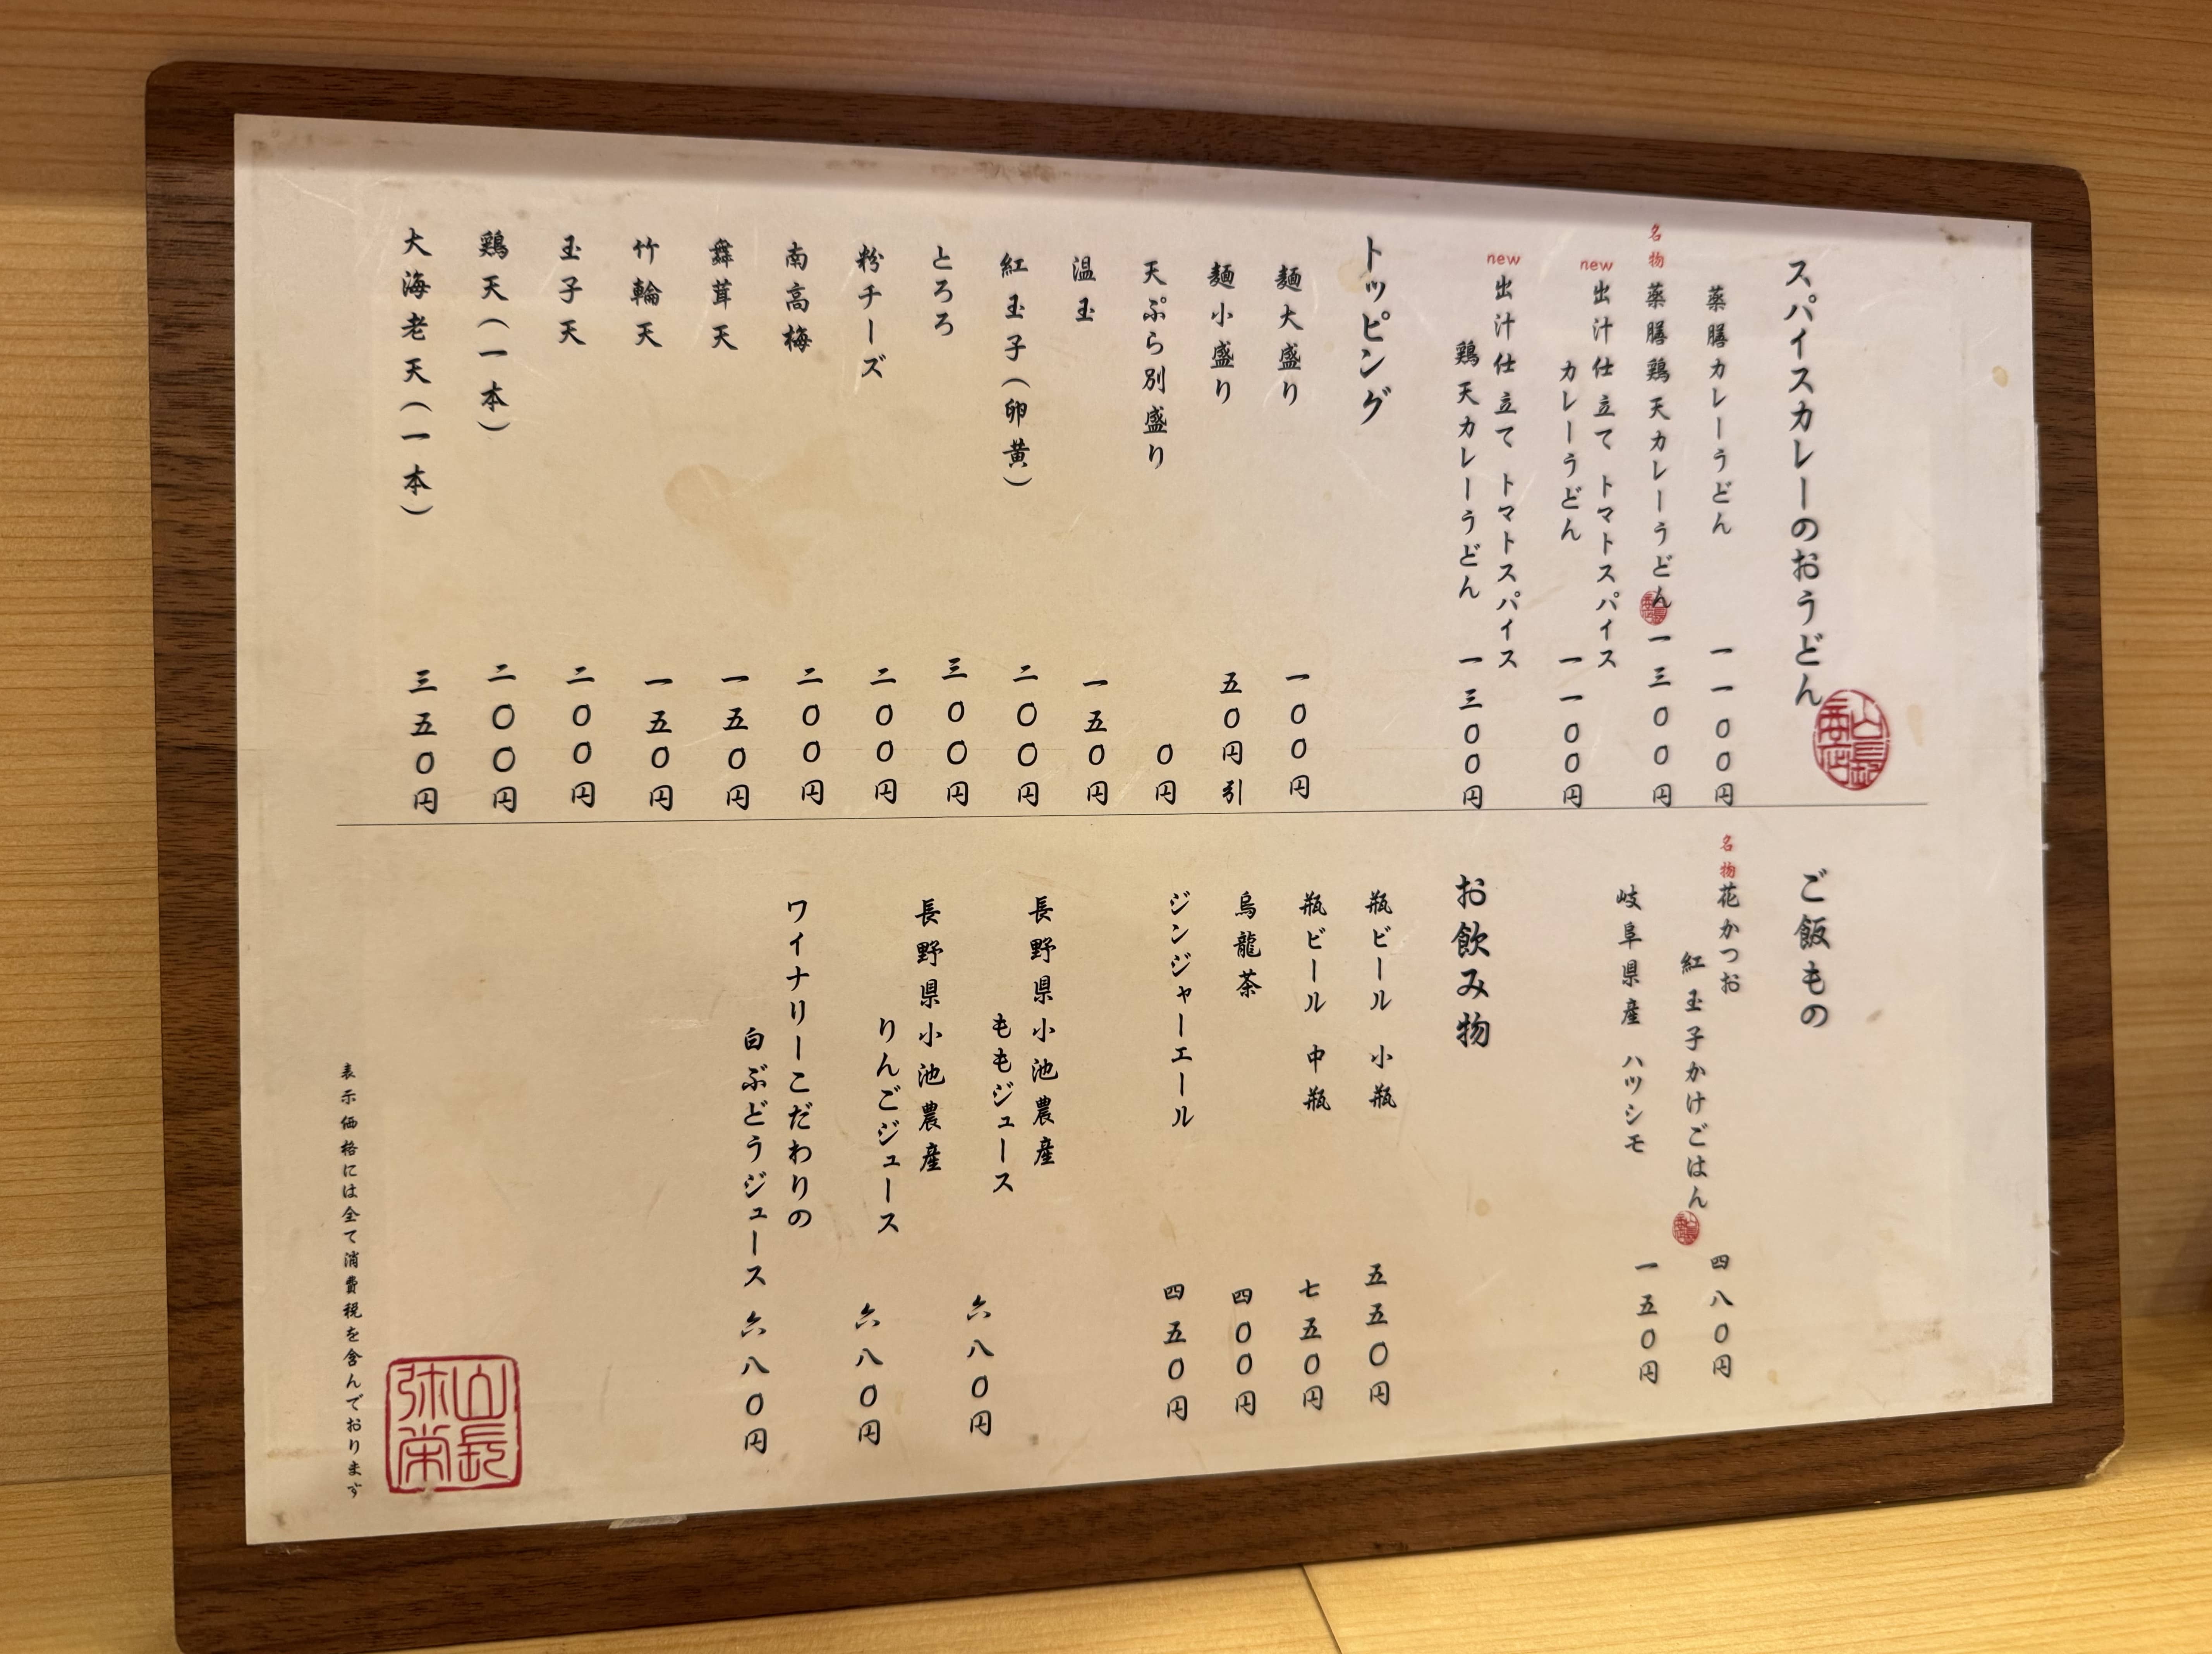 スパイスカレーのおうどん
薬膳カレーうどん 一一００円
名物 薬膳鶏天カレーうどん 一三００円
new 出汁仕立て トマトスパイス
カレーうどん 一一００円
new 出汁仕立て トマトスパイス
鶏天カレーうどん 一三００円
トッピング
麺大盛り 一００円
麺小盛り 五０円引
天ぷら別盛り ０円
温玉 一五０円
紅玉子(卵黄) 二００円
とろろ 三００円
粉チーズ 二００円
南高梅 二００円
舞茸天 一五０円
竹輪天 一五０円
玉子天 二００円
鶏天(一本) 二００円
大海老天(一本) 三五０円
ご飯もの
名物 花かつお
紅玉子かけごはん 四八０円
岐阜県産 ハツシモ 一五０円
お飲み物
瓶ビール 小瓶 五五０円
瓶ビール 中瓶 七五０円
烏龍茶 四００円
ジンジャーエール 四五０円
長野県小池農産
ももジュース 六八０円
長野県小池農産
りんごジュース 六八０円
ワイナリーこだわりの
白ぶどうジュース 六八０円
表示価格には全て消費税を含んでおります
山長
弥栄